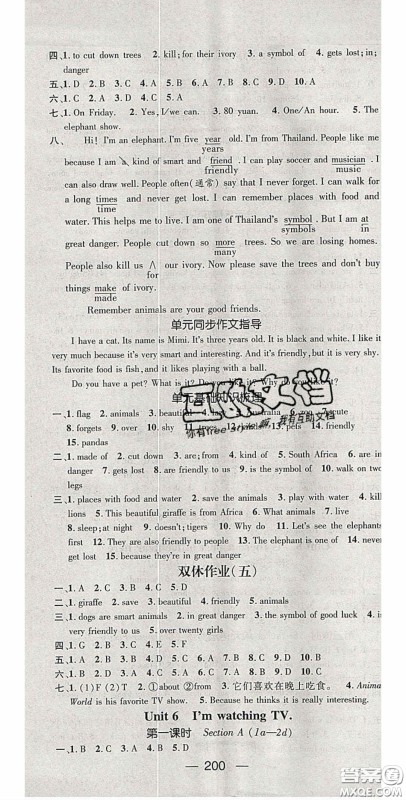 四、1. to cut down trees 2. kill; for their ivory 3. a symbol of 4. gets lost; in;
danger
五、1. D 2. B 3. C 4. A 5. B 6. C 7. B 8. B 9. D 10. A
六、1. C 2. A 3. B 4. C 5. A
七、1. On Friday. 2. Yes, I/we can. 3. 80 yuan. 4. One/An hour. 5. The
elephant show.
八、 Hi! I'm an elephant. I'm five year old. I'm from Thailand. People like me
years
because I am kind of smart and friend. I can play soccer and musician. I
friendly music
can also draw well. People often(通常) say that I never forget. I can walk for
a long times and never get lost. I can remember places with food and
time
water. This helps me to live. I am one of Thailand's symbol. But I am at
symbols in
great danger. People cut down so more trees. So we are losing our homes.
many
People also kill us ∧ our ivory. We must save the trees and not buy
for
things make of ivory.
made
Remember animals are your good friends.
单元同步作文指导
I have a cat. Its name is Mimi. It's three years old. It is black and white. I like
it very much because it's very smart and interesting. And it's friendly, but it is very lazy.
Its favorite food is fish, and it likes playing with a ball.
Do you have a pet? What is it? Do you like it? Why do you like it?
单元基础知识梳理
一、1. flag 2. animals 3. beautiful 4. lazy 5. Australia 6. too 7. cute
8. forgets 9. over 12. tigers 13. pets 14. friendly
15. pandas
二、1. made of 2. cut down 3. kinds of 4. South Africa 6. are in
danger 7. gets lost 8. are friendly to 9. is a symbol of 10. walk on
two legs
三、1. places with food and water 2. save the animals 3. play with water 4. kill
lions 5. This beautiful giraffe is from Africa 6. What animals 7. live
8. sleep; at night 9. doesn't; want 10. Why don't 11. Let's see the elephants
first 12. They are also friendly to people 13. The elephant is one of Thailand's
symbols 14. Where are 15. because they're in great danger
双休作业(五)
一、1. A 2. B 3. C 4. C 5. D
二、1. giraffe 2. save 3. beautiful 4. friendly 5. animals
三、1. dogs are smart animals 2. in great danger 3. is the symbol of good luck 4. is
friendly to me 5. over twenty girls
四、1. G 2. B 3. C 4. E 5. F
五、1. D 2. A 3. D 4. C 5. C 6. D 7. B 8. D 9. B 10. A
六、1. A 2. B 3. D 4. C 5. D
七、1. (1)F (2)T 2. ①about ②from 3. 它们喜欢在晚上吃食。 4. Animal
World is his favorite TV show. 5. Because he thinks it is really interesting.
Unit 6 I'm watching TV.
第一课时 Section A (1a—2d)
一、1. B 2. A 3. C 4. B 5. D
— 200 —
答案圈
MXQE.COM